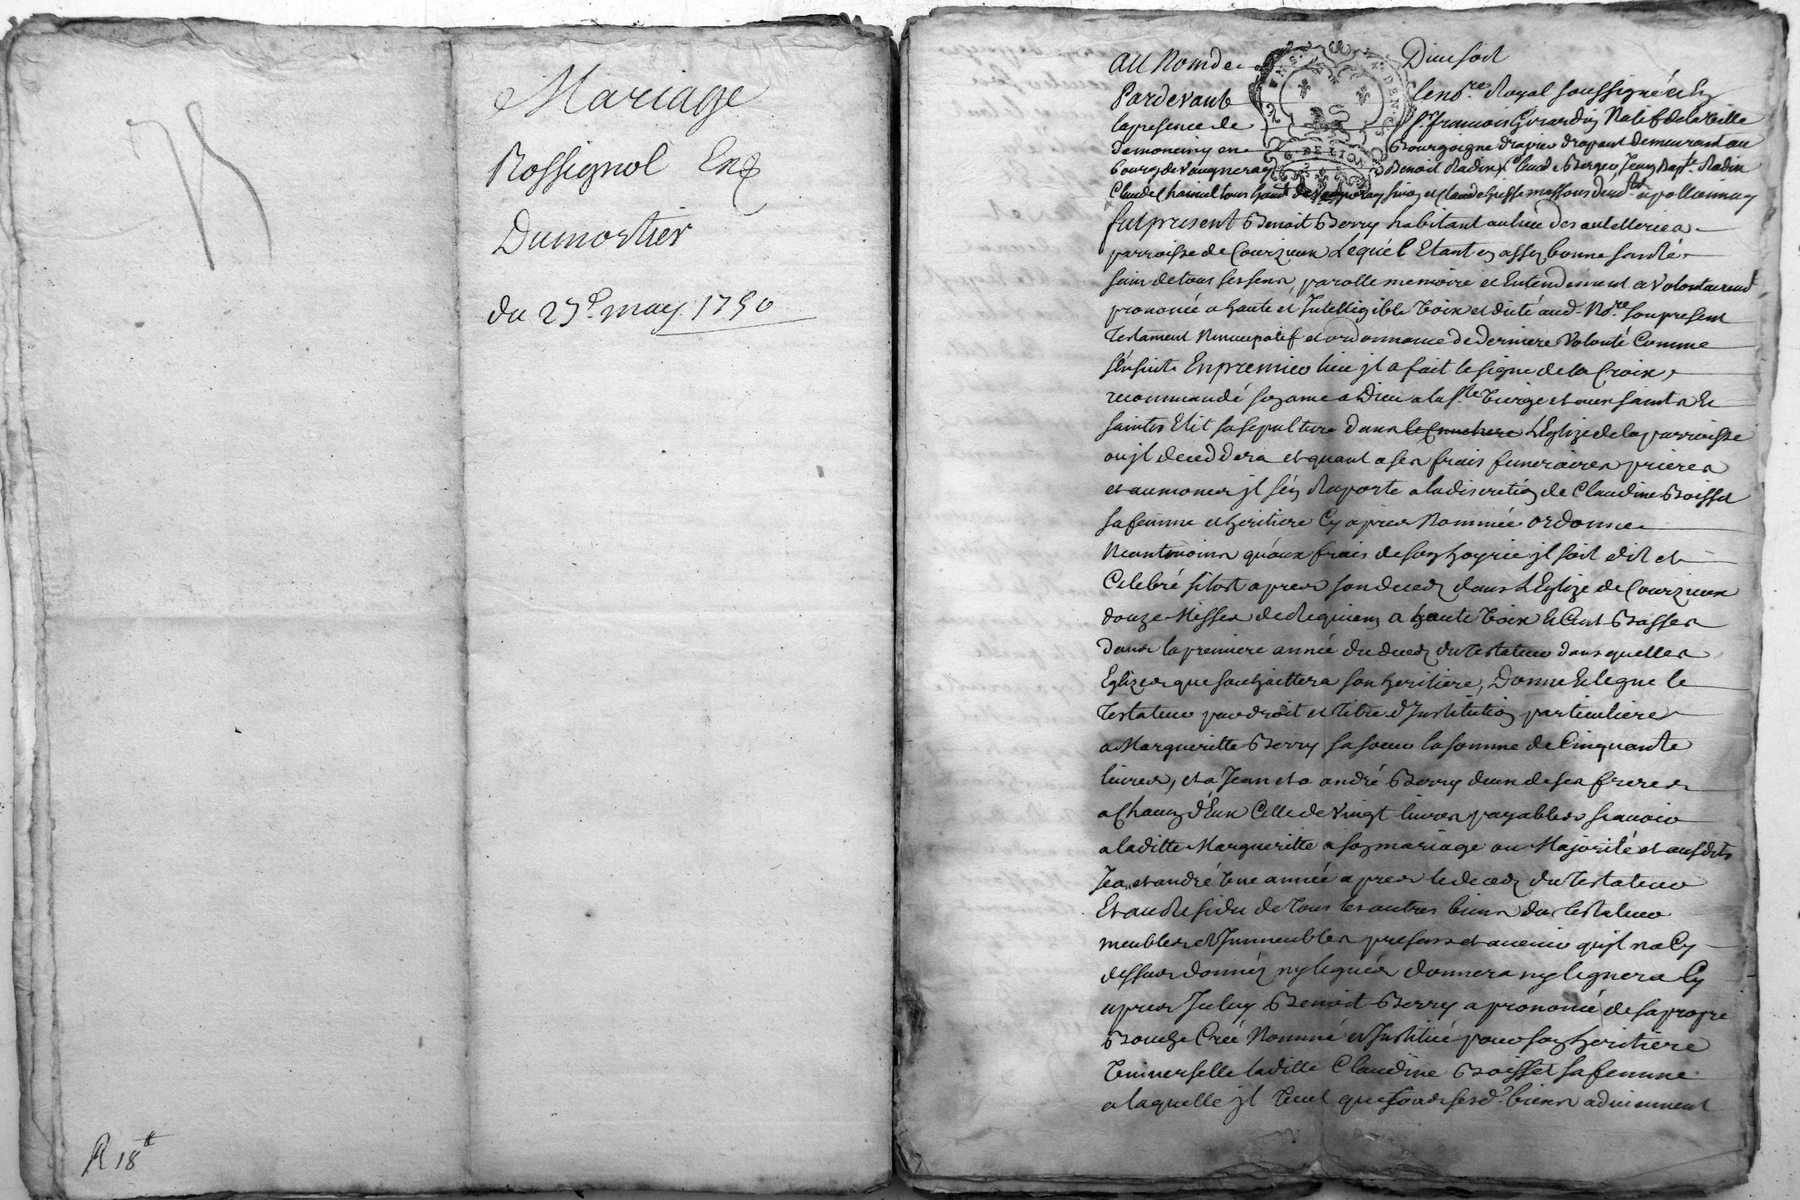 Mariage
Rossignol Et
Dumortier
du 27e. may 1750
R 18tt
Au Nom de Dieu soit
Pardevant le no.re Royal soussigné et En
la presence de Sr. francois Girardin Natif de la Ville
de
bourg de Vaugneray Benoit Radix Claude Berger Jean Bapt. Radix
Claude
fut present Benoit Berry habitant au lieu des
parroisse de Courzieux Lequel Etant en assez bonne santé
sain de tous ses sens, parolle memoire et Entendement a volontairement
prononcé a haute et Intelligible Voix et dicté aud. No.re son present
Testament Nuncupatif et ordonnance de derniere Volonté Comme
s'ensuit. En premier lieu jl a fait le signe de la Croix,
recommandé son ame a Dieu a la s.te Vierge et aux saints Et
saintes Elit sa sepulture dans L'Eglize de la parroisse
ou jl deceddera et quant a ses frais funeraires prieres
et aumones jl s'en Raporte a la discretion de Claudine Boisset
sa femme et heritiere Cy apres Nommée ordonne
Neantmoins qu'aux frais de son hoyrie jl soit dit et
Celebré sitost apres son deced dans L'Eglize de Courzieux
douze Messes de Requiem a haute Voix Et Cent Basses
dans la premiere année du deced du Testateur dans quelles
Eglizes que souhaittera son heritiere, Donne Et legue le
Testateur par droit et Titre d'Institution particuliere
a Margueritte Berry sa soeur la somme de Cinquante
livres, et a Jean et a andré Berry deux de ses freres
a Chacun d'Eux Celle de Vingt livres payables scauoir
a laditte Margueritte a son mariage ou Majorité et ausdits
Jean et andré Une année apres le deced du Testateur
Et au Residu de tous les autres biens du Testateur
meubles et Immeubles presens et auenir qu'jl n'a Cy
dessus donnés ny legués donnera ny leguera Cy
apres Iceluy Benoit Berry a prononcé de sa propre
Bouche Créé Nommé et Institué pour son heritiere
Universelle laditte Claudine Boisset sa femme
a laquelle jl Veut que tous sesd. biens adviennent